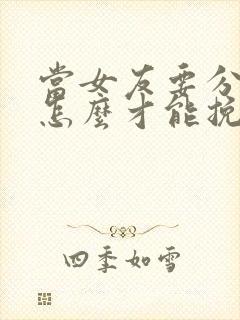 當女友要分
怎麼才能挽
四季如雪